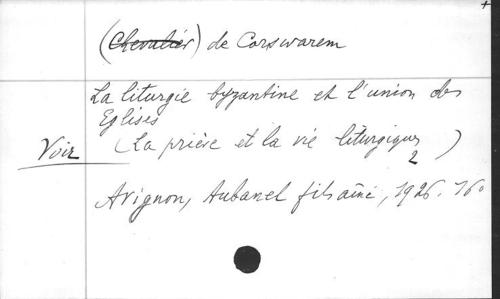 (Chevalier) de Corswarem
La liturgie byzantine et l'union des
Eglises
Voir (La prière et la vie liturgiques 2)
Avignon, Aubanel fils aîné, 1926. 16°